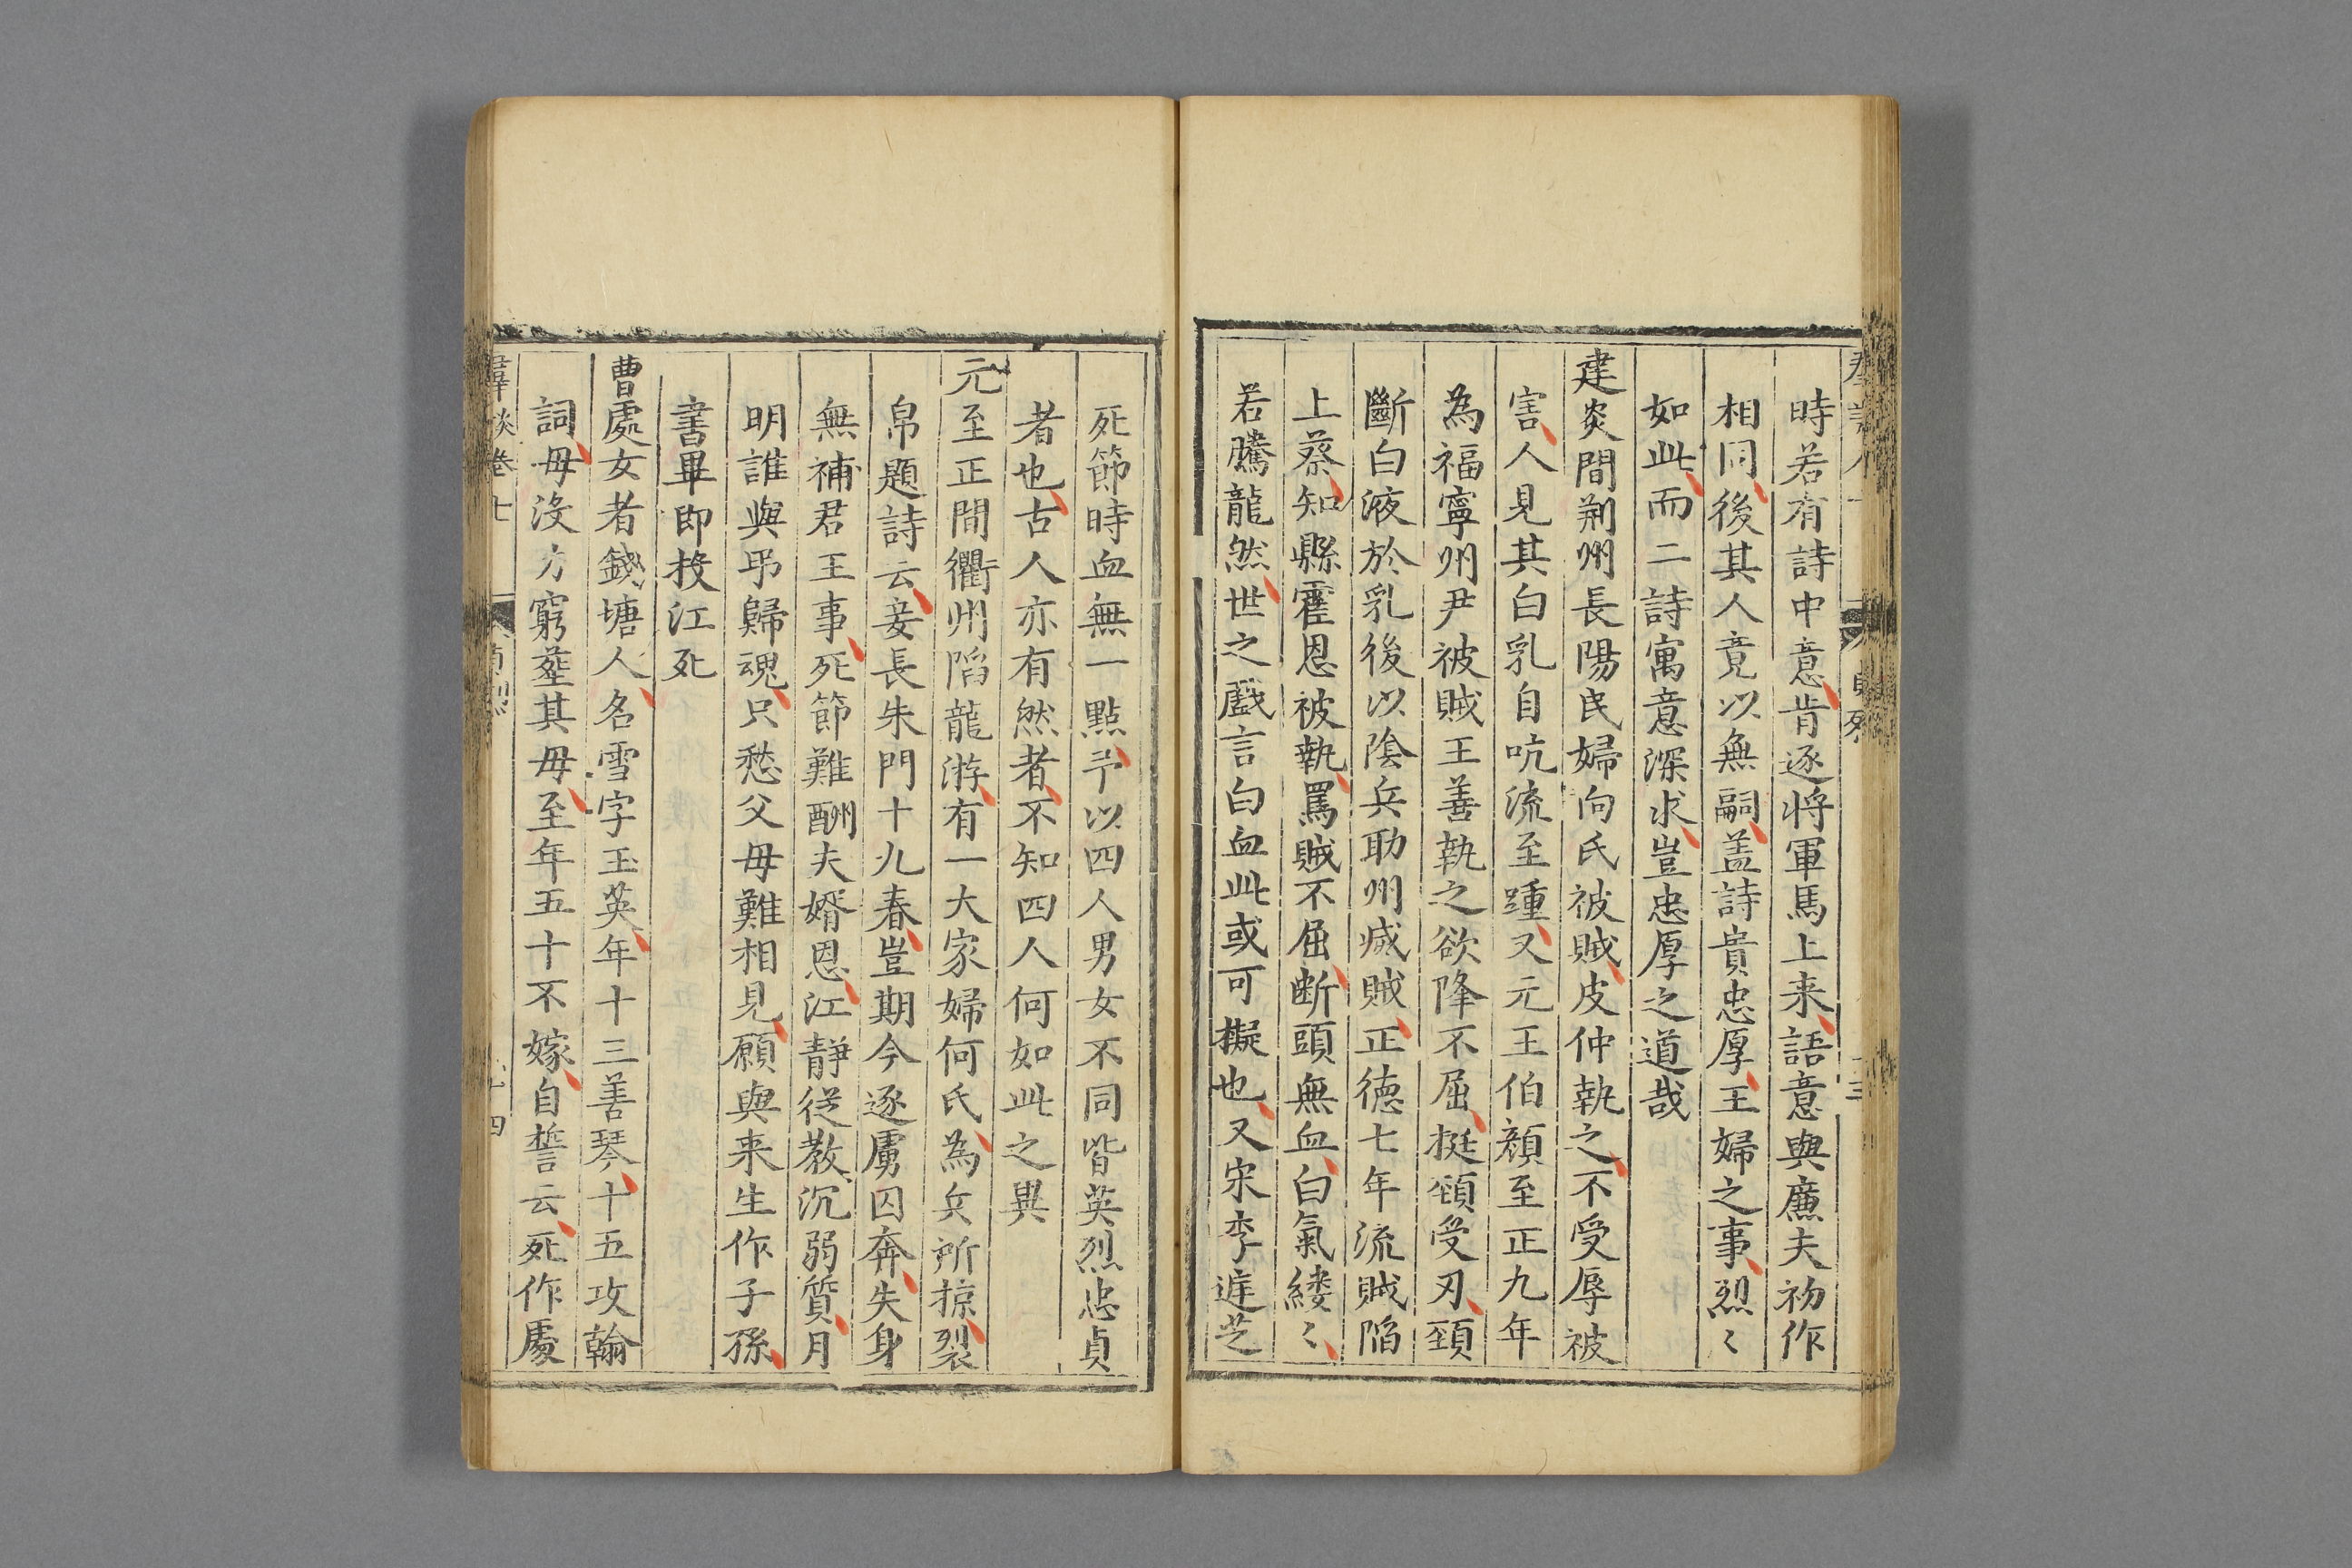 時若有詩中意肯逐將軍馬上来語意與廉夫初作
相同後其人竟以無嗣盖詩貴忠厚王婦之事烈〻
如此而二詩寓意深求豈忠厚之道哉
建炎間荊州長陽民婦向氏被賊皮仲執之不受辱被
害人見其白乳自吭流至踵又元王伯顔至正九年
為福寧州尹被賊王善執之欲降不屈挺頸受刃頸
斷白液於乳後以陰兵助州滅賊正德七年流賊陷
上蔡知縣霍恩被執罵賊不屈断頭無血白氣縷〻
若騰龍然世之戲言白血此或可擬也又宋李遮芝
死節時血無一點予以四人男女不同皆英烈忠貞
者也古人亦有然者不知四人何如此之異
元至正間衢州陷龍游有一大家婦何氏為兵所掠裂
帛題詩云妾長朱門十九春豈期今逐虜囚奔失身
無補君王事死節難酬夫婿恩江靜従教沉弱質月
明誰與弔歸魂只愁父毋難相見願與来生作子孫
書畢即投江死
曹處女者錢塘人名雪字玉英年十三善琴十五攻翰
詞毋没方窮塟其毋至年五十不嫁自誓云死作處
群談卷七 十四